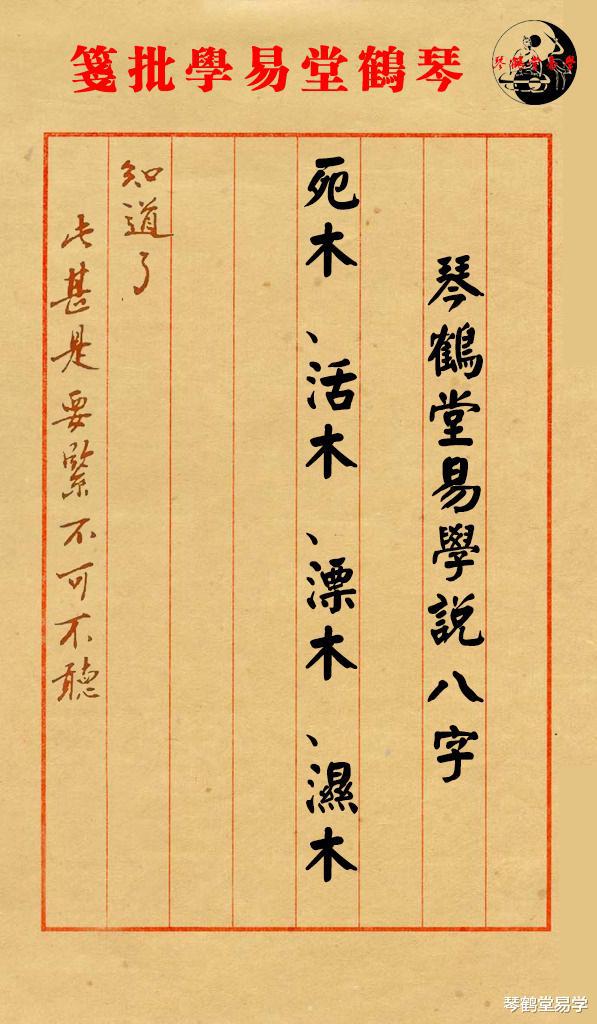 琴鶴堂易學批箋
琴鶴堂易學
琴鶴堂易學説八字
死木、活木、漂木、濕木
知道了
此甚是要緊不可不聽
琴鹤堂易学